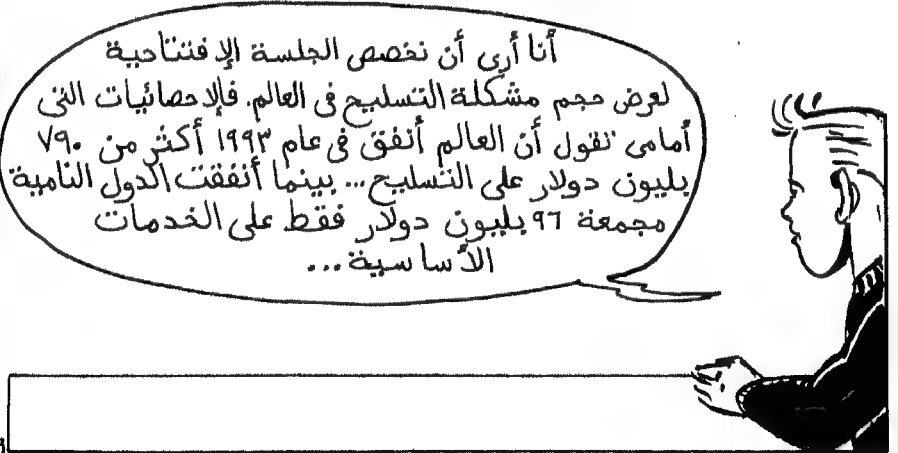 أنا أرى أن نخصص الجلسة الإفتتاحية
لعرض حجم مشكلة التسليح فى العالم. فالإحصائيات التى
أمامى تقول أن العالم أنفق فى عام ١٩٩٣ أكثر من ٧٩٠
بليون دولار على التسليح... بينما أنفقت الدول النامية
مجمعة ٩٦ بليون دولار فقط على الخدمات
الأساسية...